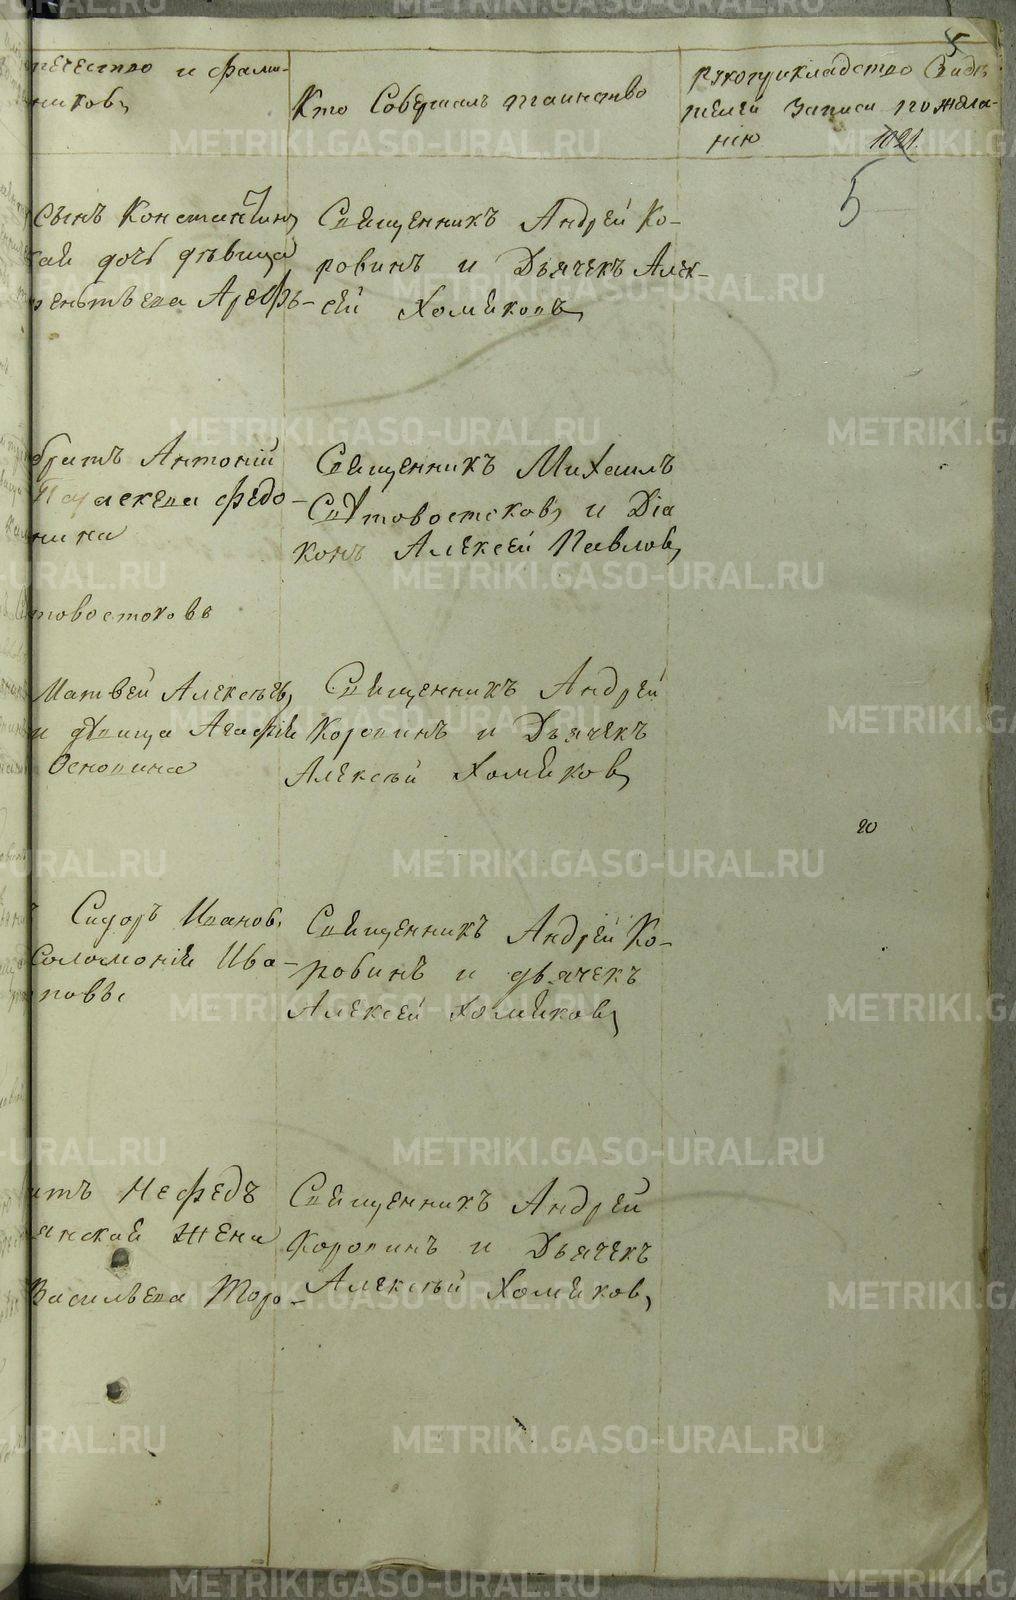 5
течество и фами-
никовъ
Кто Совершалъ таинство
Рукоприкладство Свидѣ
телей записи по жела-
нію
1021.
5
Сынъ Константинъ
кая дочь дѣвица
Арефь-
Священникъ Андрей Ко-
ровинъ и Дьячекъ Алек-
сѣй Хомяковъ
братъ Антоній
Параскева Федо-
нина
товостоковъ
Священникъ Михаилъ
Святовостоковъ и Діа
конъ Алексей Павловъ
Матвей Алексѣевъ
и дѣвица Агафія
Осповина
Священникъ Андрей
Коровинъ и Дьячекъ
Алексѣй Хомяковъ
20
Сидоръ Ивановъ
Соломонія Ива-
новъ
Священникъ Андрей Ко-
ровинъ и дьячекъ
Алексей Хомяковъ
итъ Нефедъ
янская жена
Васильева Торо-
Священникъ Андрей
Коровинъ и Дьячекъ
Алексѣй Хомяковъ
METRIKI.GASO-URAL.RU